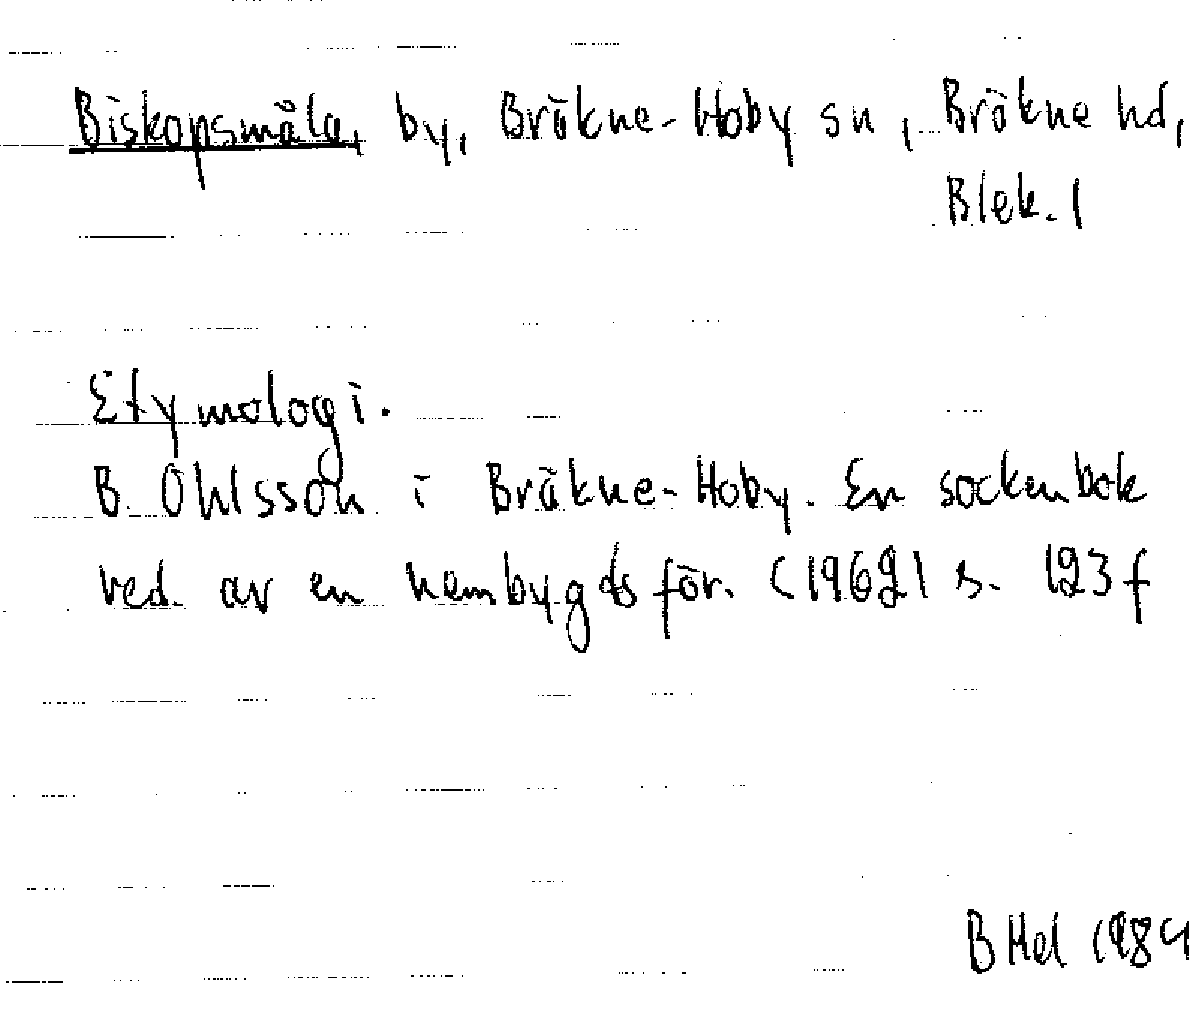 Biskopsmåla, by, Bräkne-Hoby sn, Bräkne hd,
Blek. l
Etymologi.
B. Ohlsson i Bräkne-Hoby. En sockenbok
red. av en hembygdsför. (1962) s. 123 f
B Hel 1984